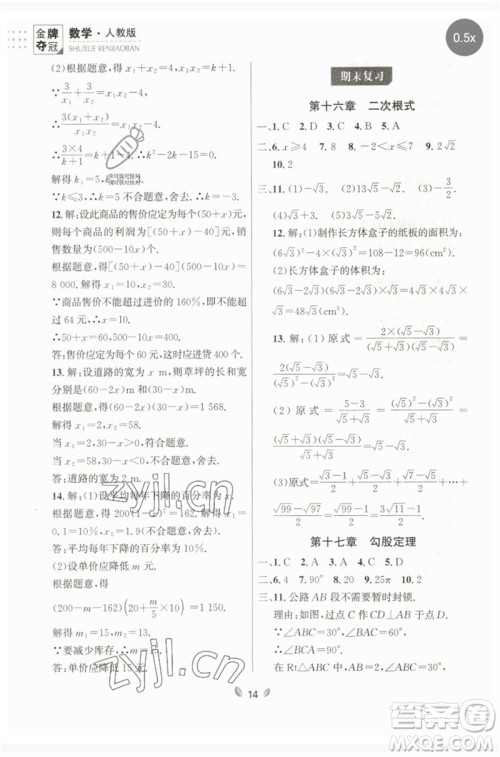 金牌夺冠 数学·人教版
SHUXUE RENJIAOBAN
0.5x
(2)根据题意,得
∵3/x₁+3/x₂=x₁x₂-4,
∴3(x₁+x₂)/(x₁x₂)=x₁x₂-4.
∴(3×4)/(k+1)=k+1-4.
解得
∵k≤3,∴k=5不合题意,舍去.
∴k=-3.
12.解:设此商品的售价应定为(50+x)元,
则商品的利润为[(50+x)-40]元,销
售数量为(500-10x)个.
根据题意,得[(50+x)-40](500-10x)=
8 000.解得x₁=10,x₂=30.
∵商品售价不能超过进价的160%,即不
超过64元,∴x=10.
∴50+x=60,500-10x=400.
答:售价应定为60元,这时应进货400个.
13.解:设道路的宽为x m,则草坪的长和宽
分别是(60-2x)m和(30-2x)m.
根据题意,得(60-2x)(30-2x)=1 568.
解得x₁=2,x₂=43.
当x=2时,30-2x>0,
答:道路的宽为2 m.
14.解:(1)设平均每年下降的百分率为x.
根据题意,得200(1-x)²=162.解得x₁=
答:平均每年下降的百分率为10%.
(2)设单价应降低m元.
根据题意,得
(200-m-162)(20+m/5×5)=1 150.
解得m₁=15,m₂=3.
∵要减少库存,∴m=15.
答:单价应降低15元.
期末复习
第十六章 二次根式
一、1.C 2.D 3.A 4.D 5.C
二、6.x≤7 7.8 8.-2<x≤7 9.2√2
10.2
三、11.(1)-√3 (2)13√5-5√3 (3)-3/2
(4)√3 (5)2√3 (6)-√3
12.解:(1)制作长方体盒子的纸板的面积:
(6√3)²-4×(√3)²=108-12=96(cm²).
(2)长方体盒子的体积:
(6√3-2√3)(6√3-2√3)×√3=4√3×
4√3×√3=48√3(cm³).
13.解:(1)原式=2×(√5-√3)/((√5+√3)(√5-√3))=
2(√5-√3)/((√5)²-(√3)²)=2(√5-√3)/2=√5-√3.
(2)原式=(5-3)/(√5+√3)=((√5)²-(√3)²)/(√5+√3)=
(√5+√3)(√5-√3)/(√5+√3)=√5-√3.
(3)原式=(√3-1)/2+(√5-√3)/2+(√7-√5)/2+…
+(√99-√97)/2=(√99-1)/2=(3√11-1)/2.
第十七章 勾股定理
一、1.C 2.A 3.D 4.C 5.D
二、6.4 7.90° 8.20 9.25π 10.2
三、11.公路AB段不需要暂时封锁.
理由:如图,过点C作CD⊥AB于点D.
∵∠ABC=30°,
∴∠BAC=90°.
在Rt△ABC中,∵∠ABC=30°,
14
zyjl.cn
zyjl.cn